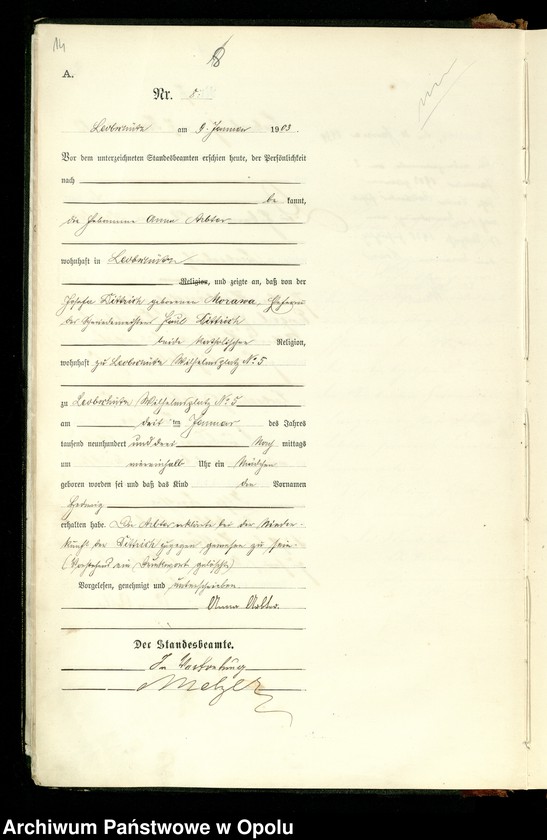 14
8
A.
Nr. 8.
Leobschütz am 9. Januar 1903.
Vor dem unterzeichneten Standesbeamten erschien heute, der Persönlichkeit
nach
be kannt,
die Hebamme Anna Arbter
wohnhaft in Leobschütz
Religion, und zeigte an, daß von der
Josefa Dittrich geborenen Morawa, Ehefrau
des Paul Dittrich
beide katholischer Religion,
wohnhaft zu Leobschütz Wilhelmsplatz No 5
zu Leobschütz Wilhelmsplatz No 5
am ten Januar des Jahres
tausend neunhundert und drei Nach mittags
um Uhr ein Mädchen
geboren worden sei und daß das Kind den Vornamen
Hedwig
erhalten habe. Die Arbter erklärte bei der Nieder-
kunft der Dittrich zugegen gewesen zu sein.
(Vorstehend ein Druckwort gelöscht)
Vorgelesen, genehmigt und unterschrieben.
Anna Arbter.
Der Standesbeamte.
In Vertretung
Melzer
Archiwum Państwowe w Opolu